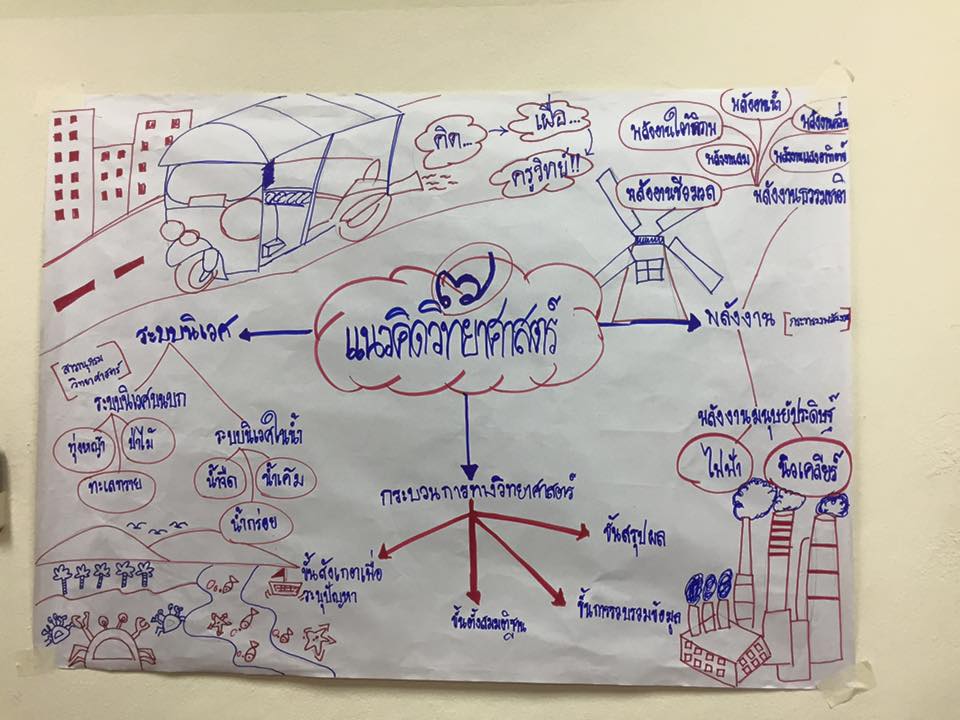 คิด...
เผื่อ...
ครูวิทย์!!
พลังงานน้ำ
พลังงานใต้พิภพ
พลังงานคลื่น
พลังงานลม
พลังงานแสงอาทิตย์
พลังงานชีวมวล
พลังงานธรรมชาติ
๗
แนวคิดวิทยาศาสตร์
ระบบนิเวศ
[สารานุกรม
วิทยาศาสตร์]
ระบบนิเวศบนบก
ทุ่งหญ้า
ป่าไม้
ทะเลทราย
ระบบนิเวศในน้ำ
น้ำจืด
น้ำเค็ม
น้ำกร่อย
พลังงาน [กระทรวงพลังงาน]
พลังงานมนุษย์ประดิษฐ์
ไฟฟ้า
นิวเคลียร์
กระบวนการทางวิทยาศาสตร์
ขั้นสังเกตเพื่อ
ระบุปัญหา
ขั้นตั้งสมมติฐาน
ขั้นการรวบรวมข้อมูล
ขั้นสรุปผล